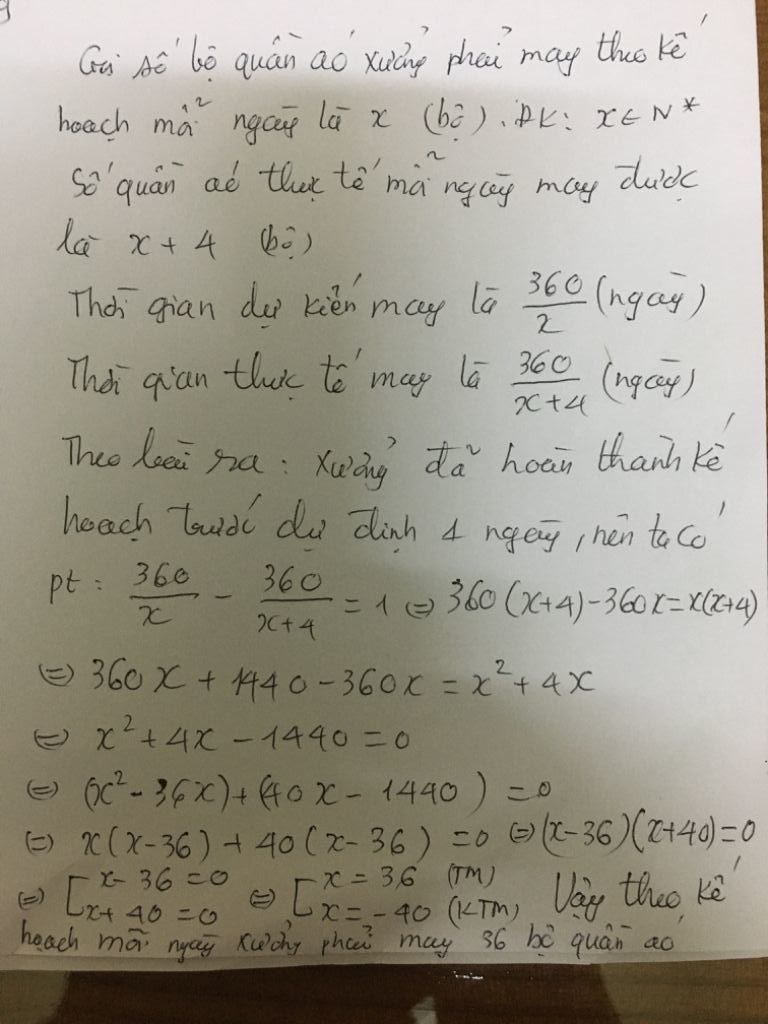 Gọi số bộ quần áo xưởng phải may theo kế
hoạch mỗi ngày là x (bộ). ĐK: x ∈ N*
Số quần áo thực tế mỗi ngày may được
là x + 4 (bộ)
Thời gian dự kiến may là \frac{360}{x} (ngày)
Thời gian thực tế may là \frac{360}{x+4} (ngày)
Theo bài ra: xưởng đã hoàn thành kế
hoạch trước dự định 1 ngày, nên ta có
pt: \frac{360}{x} - \frac{360}{x+4} = 1 ⇔ 360(x+4) - 360x = x(x+4)
⇔ 360x + 1440 - 360x = x² + 4x
⇔ x² + 4x - 1440 = 0
⇔ (x² - 36x) + (40x - 1440) = 0
⇔ x(x-36) + 40(x-36) = 0 ⇔ (x-36)(x+40) = 0
⇔ [x - 36 = 0 ⇔ [x = 36 (TM)
x + 40 = 0 x = -40 (KTM) Vậy theo kế
hoạch mỗi ngày xưởng phải may 36 bộ quần áo